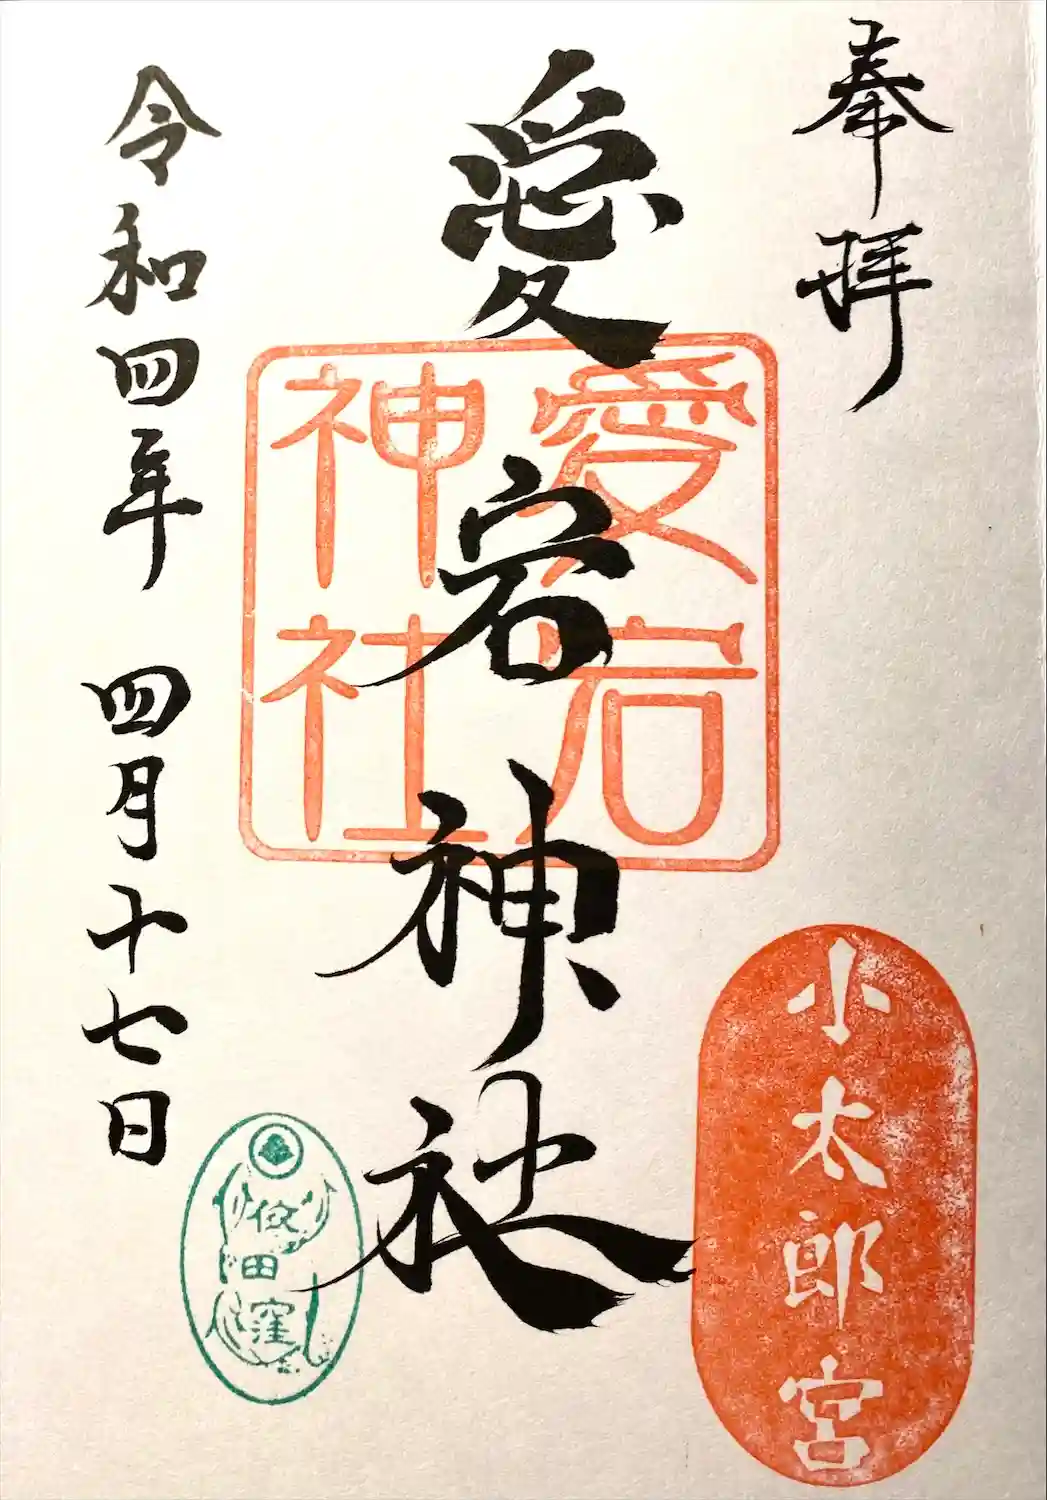 奉拝
愛宕神社
愛宕
神社
小太郎宮
令和四年 四月十七日
佼田窪